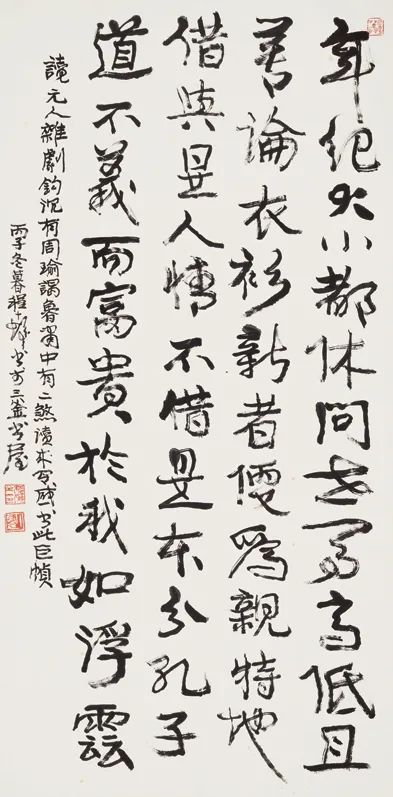 年紀大小都休問世冑高低且
莫論衣衫新者便爲親特地
借與是人情不借是本分孔子
道不義而富貴於我如浮雲
讀元人雜劇鈎沉有周瑜謁魯肅中有二煞讀來感書此巨幀
丙子冬暮程十髮書於三釜書屋